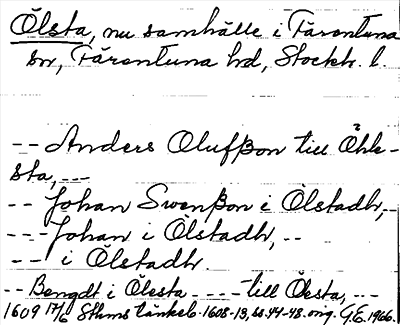 Ölsta, nu samhälle i Färentuna
sn, Färentuna hd, Stockh. l.
-- Anders Olufßon till Öhle-
sta, ---
-- Johan Swenßon i Ölstadh, -
--- Johan i Ölstadh, --
--- i Ölstadh.
-- Bengdt i Ölesta --- - till Ölesta, ---
1609 17/6 Sthms tänkeb. 1608-13, ss. 44-48. orig. G.E. 1966.